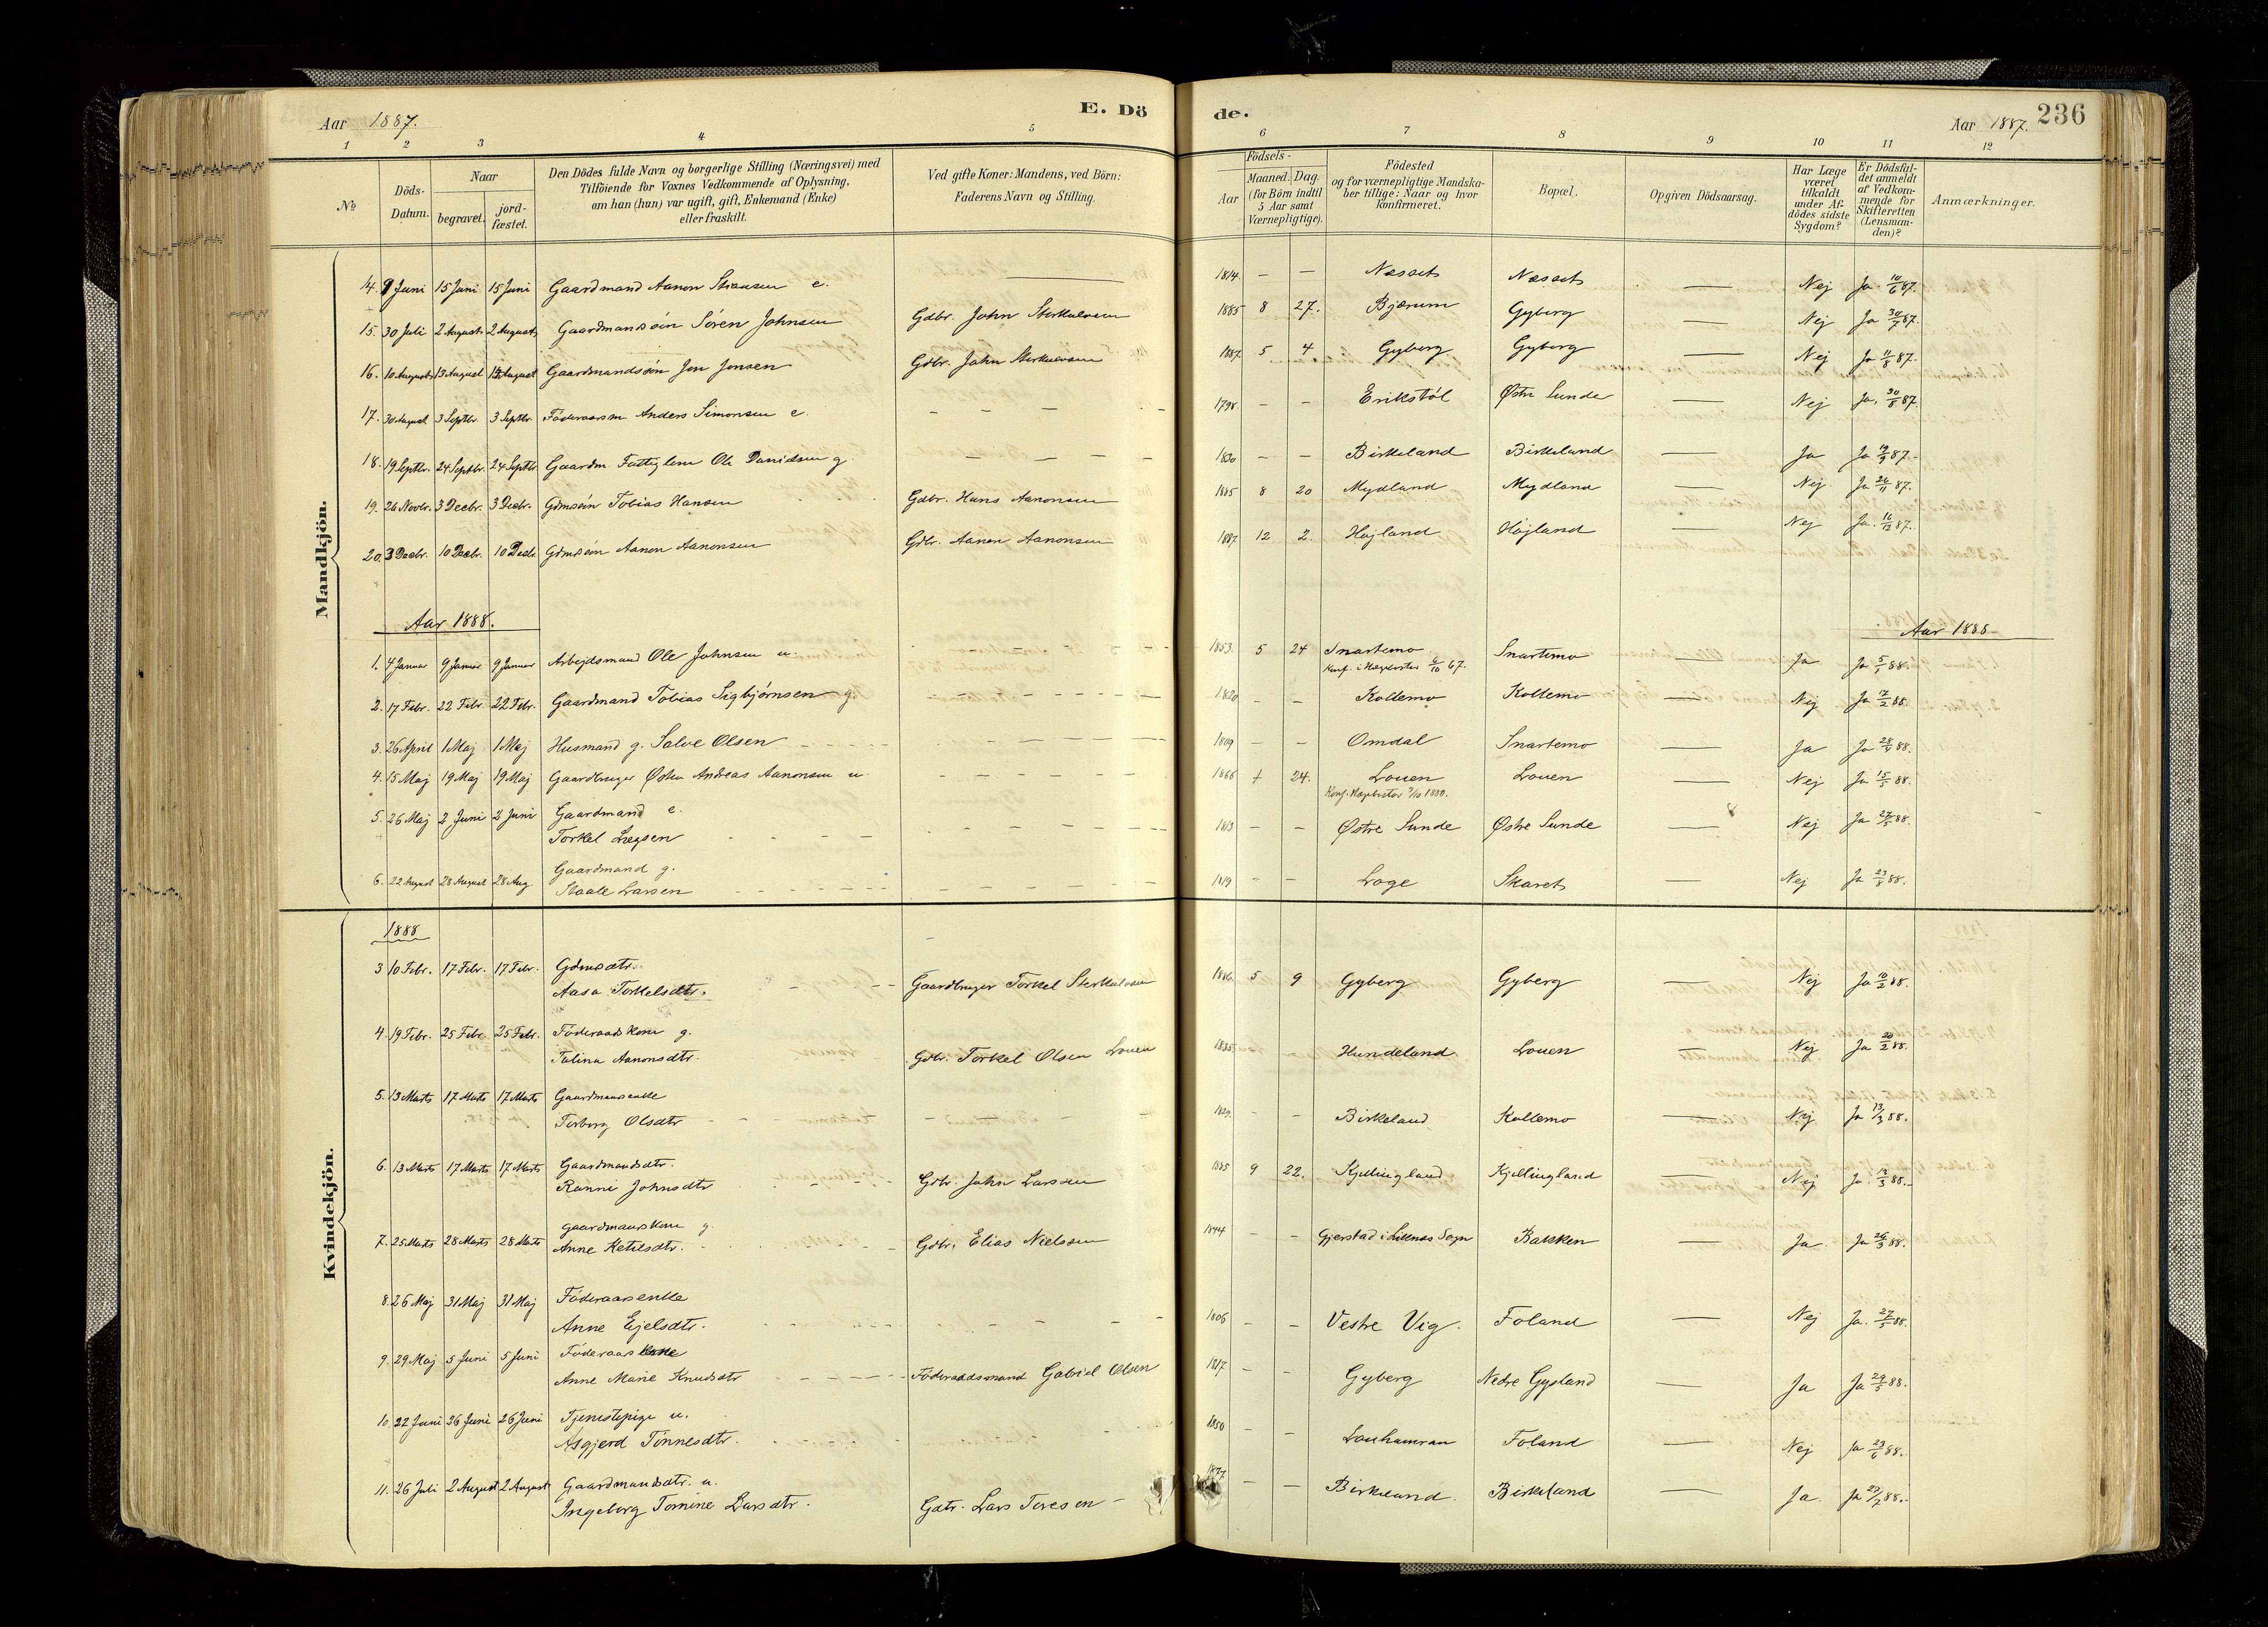 Aar 1887. E. Dö de. Aar 1887. 236
1 2 3 4 5 6 7 8 9 10 11 12
No Döds-Datum. Naar begravet. jordfæstet. Den Dödes fulde Navn og borgerlige Stilling (Næringsvei) med Tilföiende for Voxnes Vedkommende af Oplysning, om han (hun) var ugift, gift, Enkemand (Enke) eller fraskilt. Ved gifte Koner: Mandens, ved Börn: Faderens Navn og Stilling. Födsels- Aar Maaned. Dag. (for Börn indtil 5 Aar samt Værnepligtige). Födested og for værnepligtige Mandskaber tillige: Naar og hvor konfirmeret. Bopæl. Opgiven Dödsaarsag. Har Læge været tilkaldt under Afdödes sidste Sygdom? Er Dödsfaldet anmeldt af Vedkommende for Skifteretten (Lensmanden)? Anmærkninger.
Mandkjön.
14. 9 Juni 15 Juni 15 Juni Gaardmand Aanon e. — 1814. — — Næsset Næsset — Nej Ja 10/6 87.
15. 30 Juli 2 August 2 August Gaardmandsön Sören Johnsen Gdbr. John Sterkulvsen 1885 8 27. Bjærum Gyberg — Nej Ja 30/7 87.
16. 10 August 13 August 13 August Gaardmandssön Jon Jonsen Gdbr. John Sterkulvsen 1887 5 4 Gyberg Gyberg — Nej Ja 11/8 87.
17. 30 August 3 Septbr. 3 Septbr Föderaadsm Anders Simonsen e. — — — 1798. — — Erikstöl Østre Sunde — Nej Ja, 30/8 87.
18. 19 Septbr. 24 Septbr. 24 Septbr Gaardm. Fattiglem Ole Danielsen g. — — — — 1830 — — Birkeland Birkeland — Ja Ja 19/9 87.
19. 26 Novbr. 3 Decbr. 3 Decbr. Gdmsön Tobias Hansen Gdbr. Hans Aanonsen 1885 8 20 Mydland Mydland — Nej Ja 26/11 87.
20. 3 Decbr. 10 Decbr. 10 Decbr Gdmsön Aanon Aanonsen Gdbr. Aanon Aanonsen 1887 12 2 Højland Højland — Nej Ja. 16/12 87.
Aar 1888. Aar 1888
1. 4 Januar 9 Januar 9 Januar Arbejdsmand Ole Johnsen u. 1853 5 24 Snartemo Snartemo — Ja Ja 5/1 88.
Konf. i Hægbostad 6/10 67.
2. 17 Febr. 22 Febr. 22 Febr. Gaardmand Tobias Sigbjörnsen g. 1820 — — Kollemo Kollemo — Nej Ja 17/2 88.
3. 26 April 1 Maj 1 Maj Husmand g. Salve Olsen 1809 — — Omdal Snartemo — Ja Ja 28/4 88.
4. 15 Maj 19 Maj 19 Maj Gaardbruger Østen Andreas Aanonsen u. 1866 24. Louen Louen — Nej Ja 15/5 88.
5. 26 Maj 2 Juni 2 Juni Gaardmand e.
Torkel 1813 — — Østre Sunde Østre Sunde — Nej Ja 27/5 88.
Gaardmand g.
6. 22 August 28 August 28 Aug Staale Larsen 1819 — — Loge Skaret — Nej Ja 23/8 88.
Kvindekjön.
1888
3 10 Febr. 17 Febr. 17 Febr. Gdmsdtr.
Aasa Torkelsdtr. Gaardbruger Torkel Sterkulvsen 1886 5 9 Gyberg Gyberg — Nej Ja 10/2 88.
4. 19 Febr. 25 Febr. 25 Febr. Föderaadskone g.
Talina Aanonsdtr. Gdbr. Torkel Olsen Louen 1835 Hundeland Louen — Nej Ja 20/2 88.
5. 13 Marts 17 Marts 17 Marts Gaardmandsenke
Torborg Olsdtr 1829. — — Birkeland Kollemo — Nej Ja 13/3 88.
6. 13 Marts 17 Marts 17 Marts Gaardmandsdtr.
Ranni Johnsdtr Gdbr. John Larsen 1885 9 22. Kjellingland Kjellingland — Nej Ja. 13/3 88.
7. 25 Marts 28 Marts 28 Marts gaardmandskone g.
Anne Ketilsdtr. Gdbr. Elias Nielsen 1844 — — Gjerstad i Sogn Bakken — Ja Ja 26/3 88.
8. 26 Maj 31 Maj 31 Maj Föderaadsenke
Anne Ejelsdtr. 1806 — — Vestre Vig. Foland — Nej Ja. 27/5 88.
9. 29 Maj 5 Juni 5 Juni Föderaadskone
Anne Marie Knudsdtr Föderaadsmand Gabriel Olsen 1817 — — Gyberg Nedre Gysland — Ja Ja 29/5 88.
10. 22 Juni 26 Juni 26 Juni Tjenestepige u.
Asgjerd Tönnesdtr. 1850 — — Foland — Nej Ja 23/6 88.
11. 26 Juli 2 August 2 August Gaardmandsdtr. u.
Ingeborg Tomine Larsdtr. Lars Toresen — — Birkeland Birkeland — Ja Ja 27/7 88.